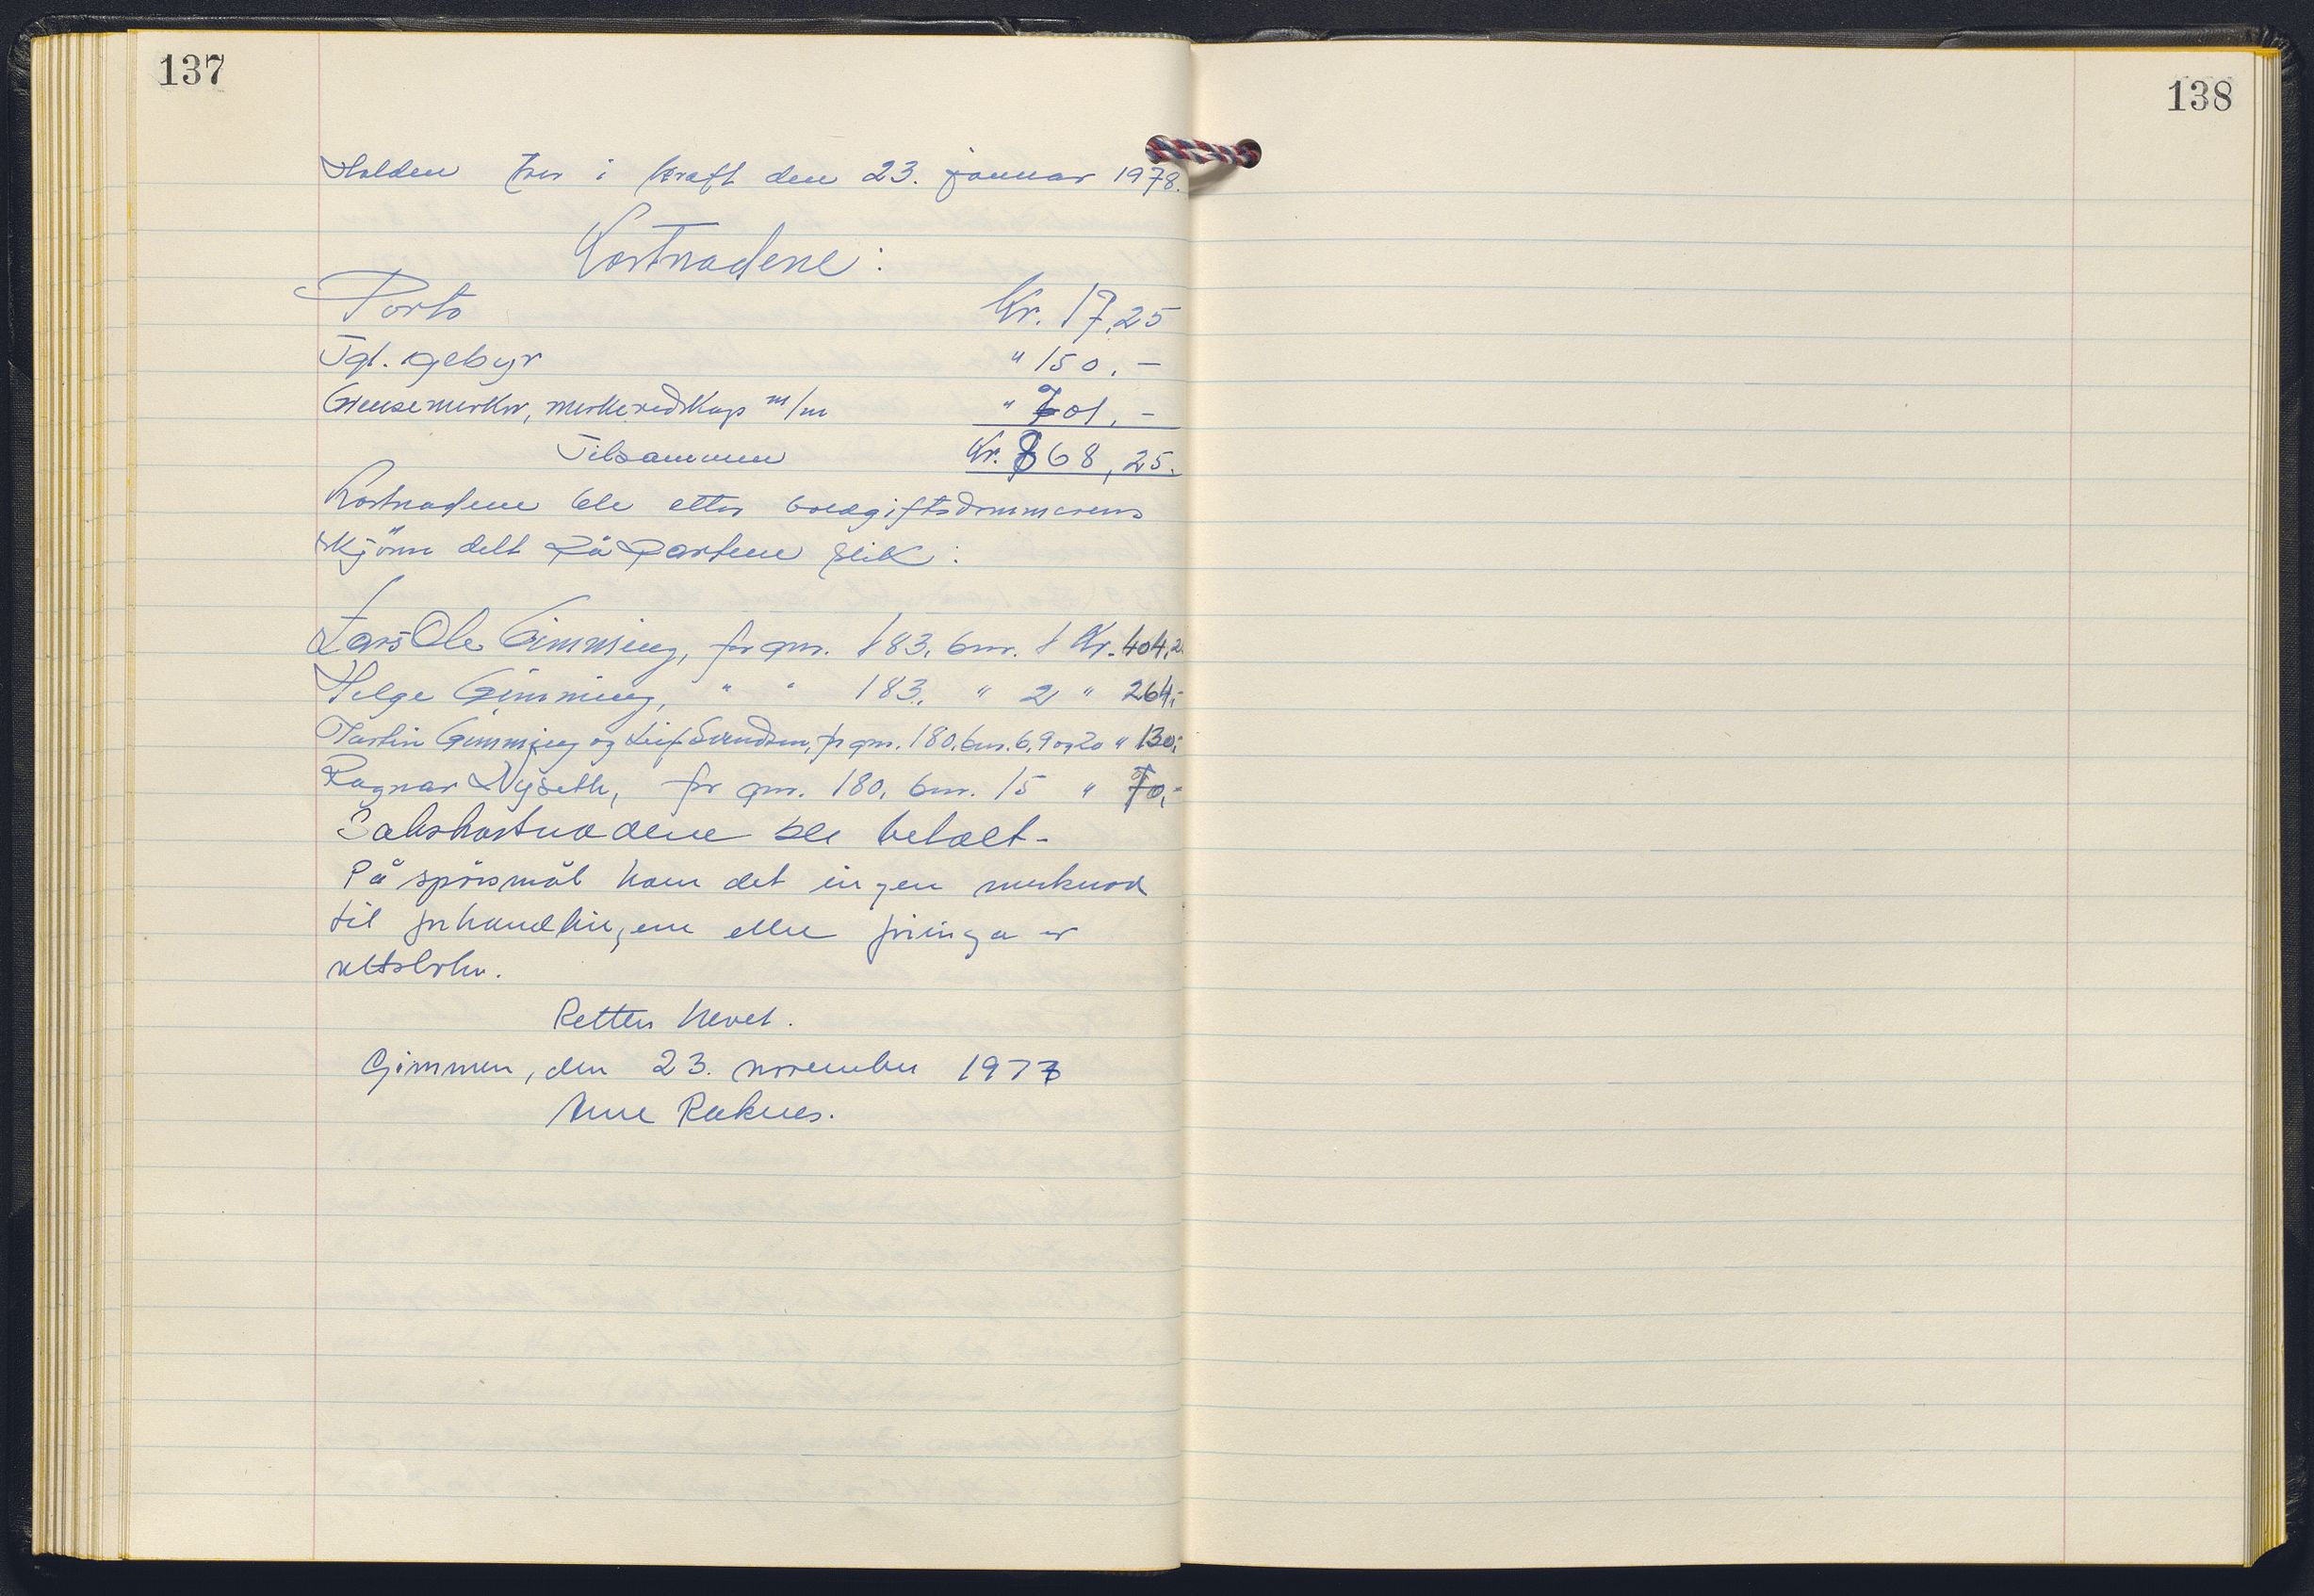 137
138
Holden trer i kraft den 23. januar 1978.
Kostnadene:
Porto Kr. 17,25
Tgl. gebyr " 150,-
Grensemerker, merkeredskap m/m " 701,-
Tilsammen Kr. 868,25.
Kostnadene ble etter voldgiftsdommerens
skjönn delt på partene slik:
Lars Ole Gimming, for gnr. 183, bnr. 1 Kr. 404,2
Helge Gimming, " " 183, " 2 " 264,-
Martin Gimming og Leif Svendsen, for gnr. 180, bnr. 6, 9 og 20 " 130,-
Ragnar Nyseth, for gnr. 180, bnr. 15 " 70,-
Sakskostnadene ble betalt.
På spörsmål kom det ingen merknad
til forhandlingene eller föringa av
rettsboka.
Retten hevet.
Gimmen, den 23. november 1977
Raknes.